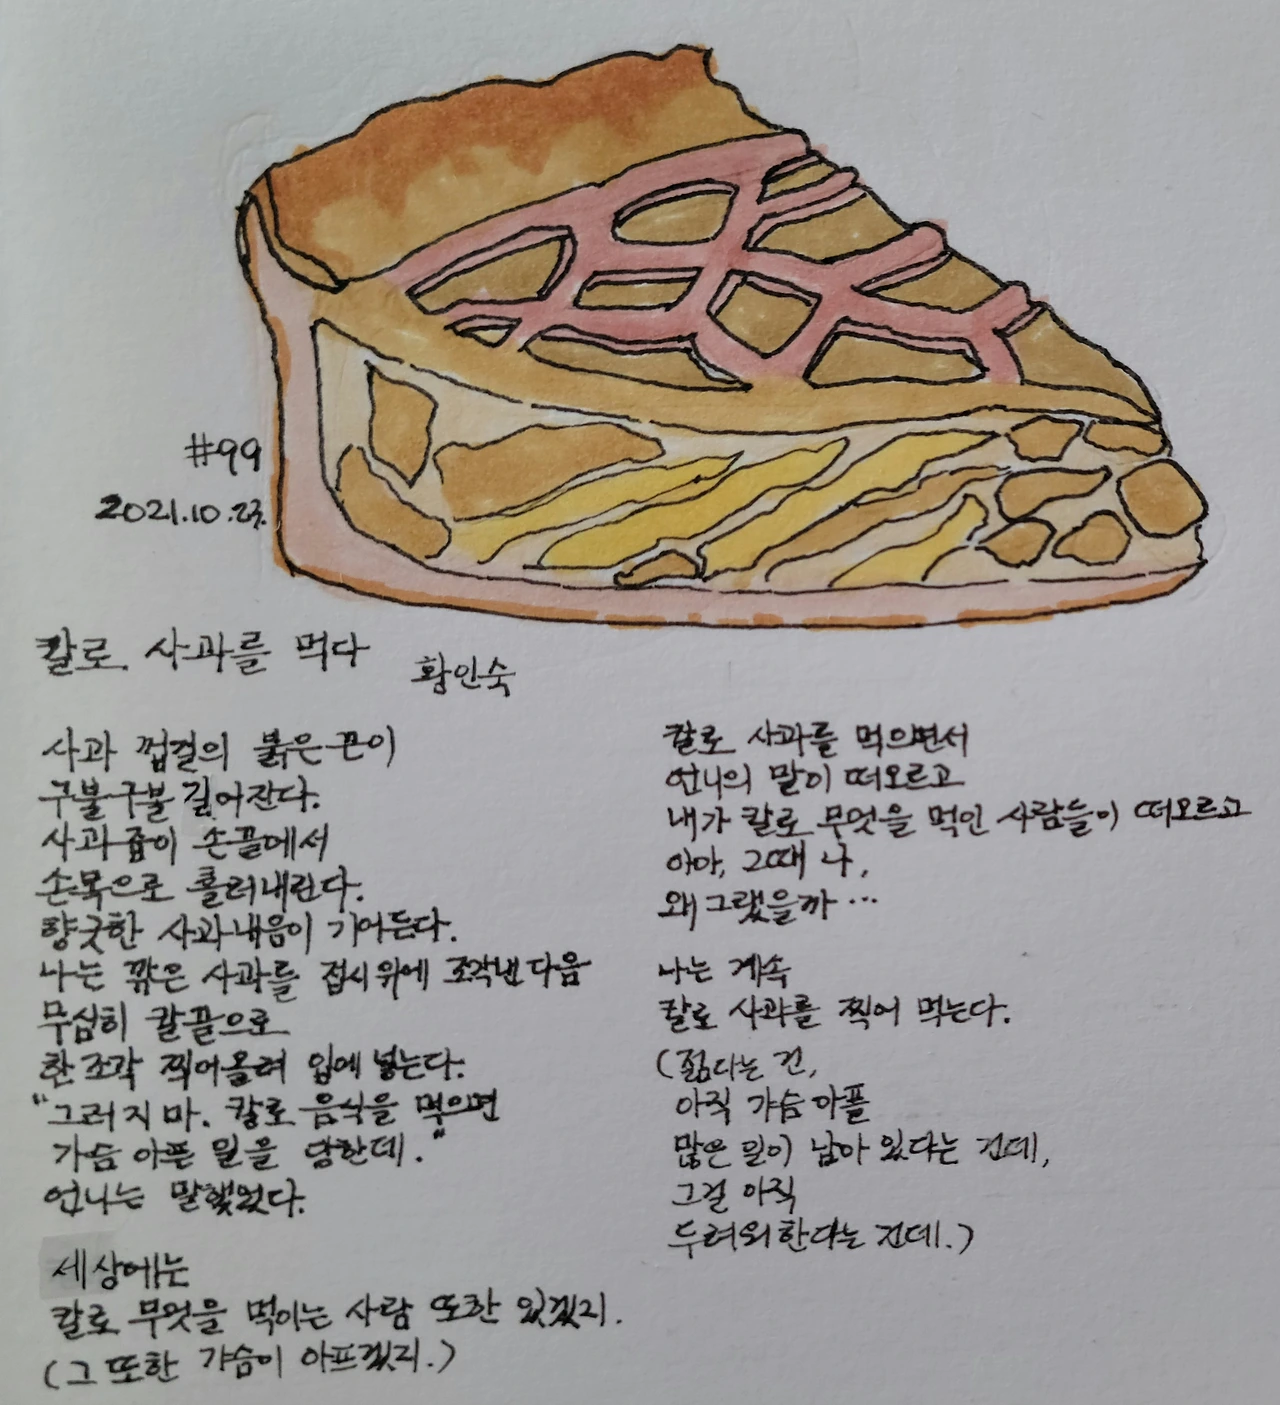 #99
2021.10.23.
칼로 사과를 먹다
황인숙
사과 껍질의 붉은 끈이
구불구불 길어진다.
사과즙이 손끝에서
손목으로 흘러내린다.
향긋한 사과 내음이 기어든다.
나는 깎은 사과를 접시 위에 조각낸 다음
무심히 칼끝으로
한 조각 찍어올려 입에 넣는다.
"그러지 마. 칼로 음식을 먹으면
가슴 아픈 일을 당한대."
언니는 말했었다.
세상에는
칼로 무엇을 먹이는 사람 또한 있겠지.
(그 또한 가슴이 아프겠지.)
칼로 사과를 먹으면서
언니의 말이 떠오르고
내가 칼로 무엇을 먹인 사람들이 떠오르고
아아, 그때 나,
왜 그랬을까…
나는 계속
칼로 사과를 찍어 먹는다.
(젊다는 건,
아직 가슴 아플
많은 일이 남아 있다는 건데,
그걸 아직
두려워한다는 건데.)